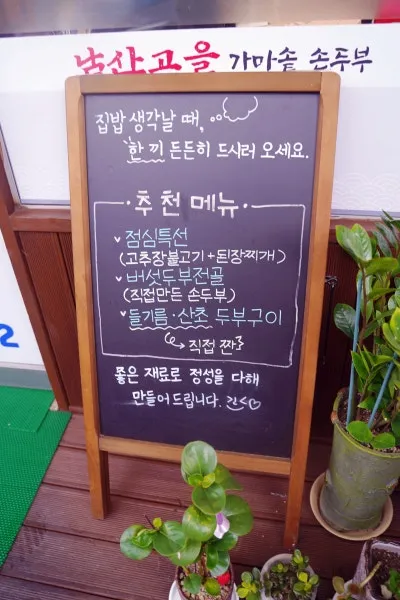 남산고을 가마솥 손두부
집밥 생각날 때,
한 끼 든든히 드시러 오세요.
추천 메뉴
점심특선
(고추장불고기+된장찌개)
버섯두부전골
(직접만든 손두부)
들기름·산초 두부구이
직접 짠
좋은 재료로 정성을 다해
만들어드립니다.
2